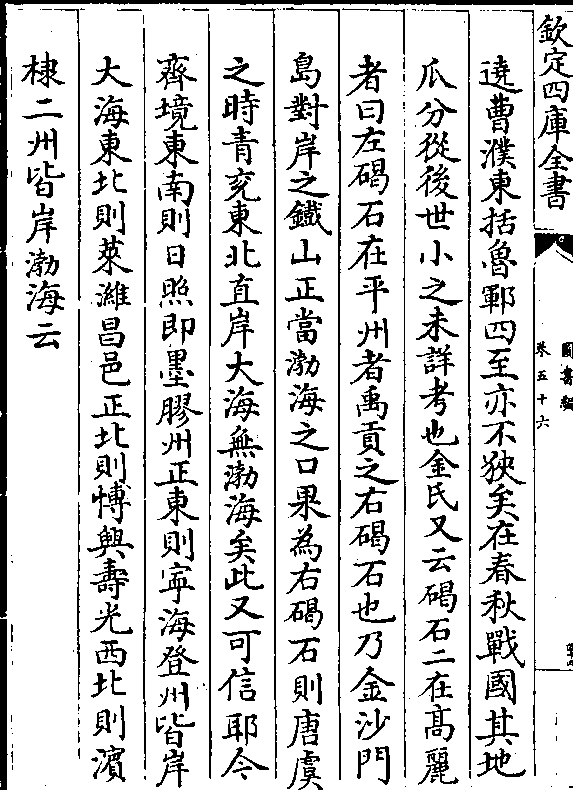 欽定四庫全書
圖書編
卷五十六
遶曹濮東括魯鄆四至亦不狹矣在春秋戰國其地
瓜分從後世小之未詳考也金氏又云碣石二在高麗
者曰左碣石在平州者禹貢之右碣石也乃金沙門
島對岸之鐵山正當渤海之口果為右碣石則唐虞
之時青兖東北直岸大海無渤海矣此又可信耶今
齊境東南則日照即墨膠州正東則寧海登州皆岸
大海東北則萊濰昌邑正北則愽興壽光西北則濱
棣二州皆岸渤海云